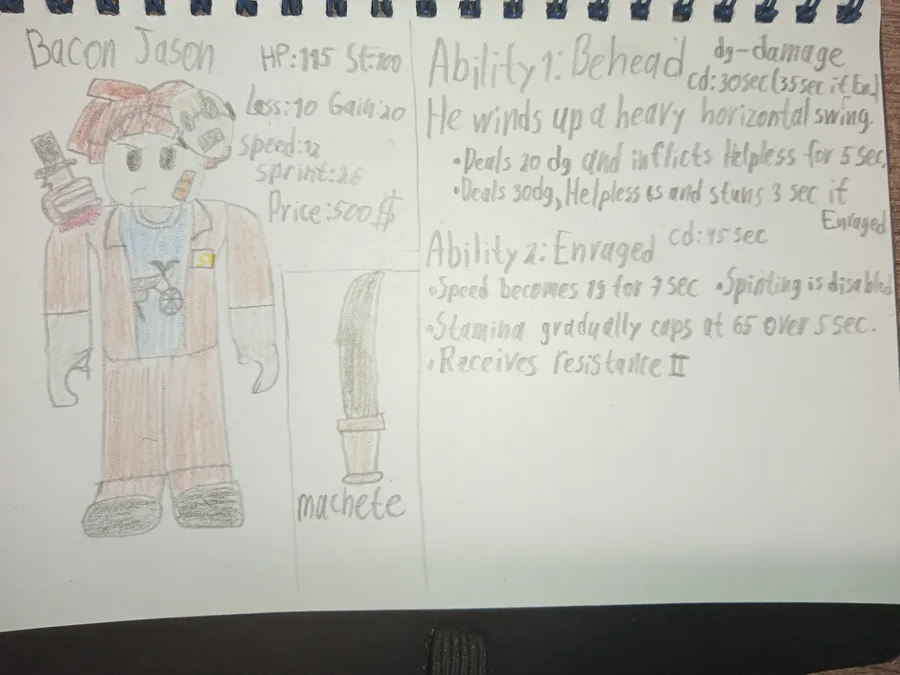 Bacon Jason
HP:115 St:100
Loss:10 Gain:20
speed:12
sprint:26
Price:500$
machete
Ability 1: Behead
dg-damage
cd:30sec(35sec if En
He winds up a heavy horizontal swing.
•Deals 20 dg and inflicts Helpless for 5 sec.
•Deals 30dg, Helpless and stuns 3 sec if
Enraged
Ability 2: Enraged cd:45sec
•Speed becomes 19 for 7 sec •Spinting is disabled
•Stamina gradually caps at 65 over 5 sec.
•Receives resistance II